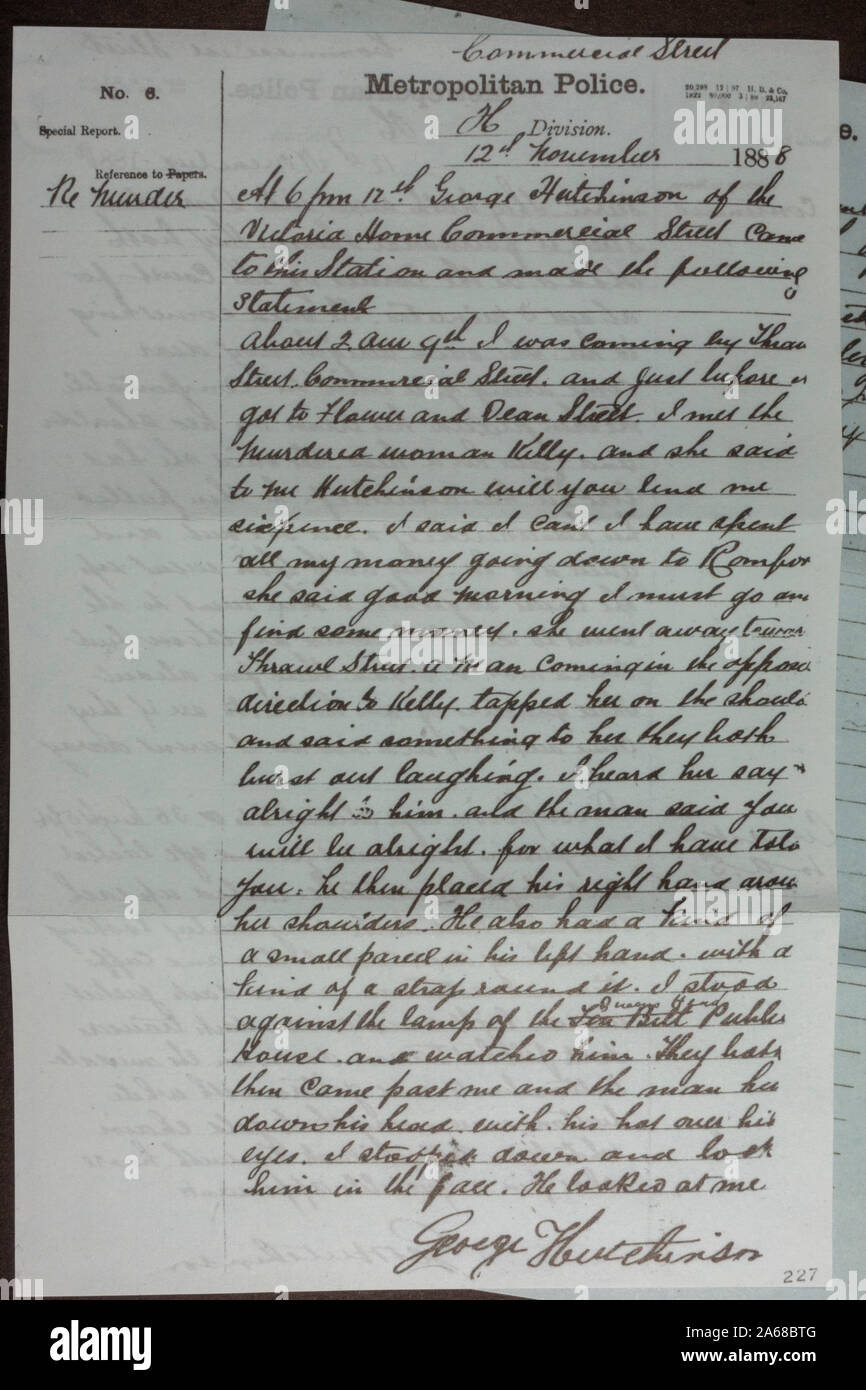 Commercial Street
No. 6.
Metropolitan Police.
Special Report.
H Division.
12th November 1888
Reference to Papers.
Re Murder
At 6 pm 12th George Hutchinson of the
Victoria Home Commercial Street came
to this Station and made the following
Statement
About 2 am 9th I was coming by Thraw
Street, Commercial Street. and just before
got to Flower and Dean Street. I met the
murdered woman Kelly. and she said
to me Hutchinson will you lend me
sixpence. I said I cant I have spent
all my money going down to Romfor
she said good morning I must go an
find some money. she went away towar
Thrawl Street. a man coming in the opposi
direction to Kelly tapped her on the should
and said something to her they both
burst out laughing. I heard her say
alright to him. and the man said you
will be alright. for what I have told
you. he then placed his right hand arou
her shoulders. He also had a kind of
a small parcel in his left hand. with a
kind of a strap round it. I stood
against the lamp of the Ten Bell Queens Head Public
House. and watched him. They both
then came past me and the man hu
down his head. with his hat over his
eyes. I stooped down and look
him in the face. He looked at me
George Hutchinson
227
alamy
alamy
Image ID: 2A68BTG
www.alamy.com